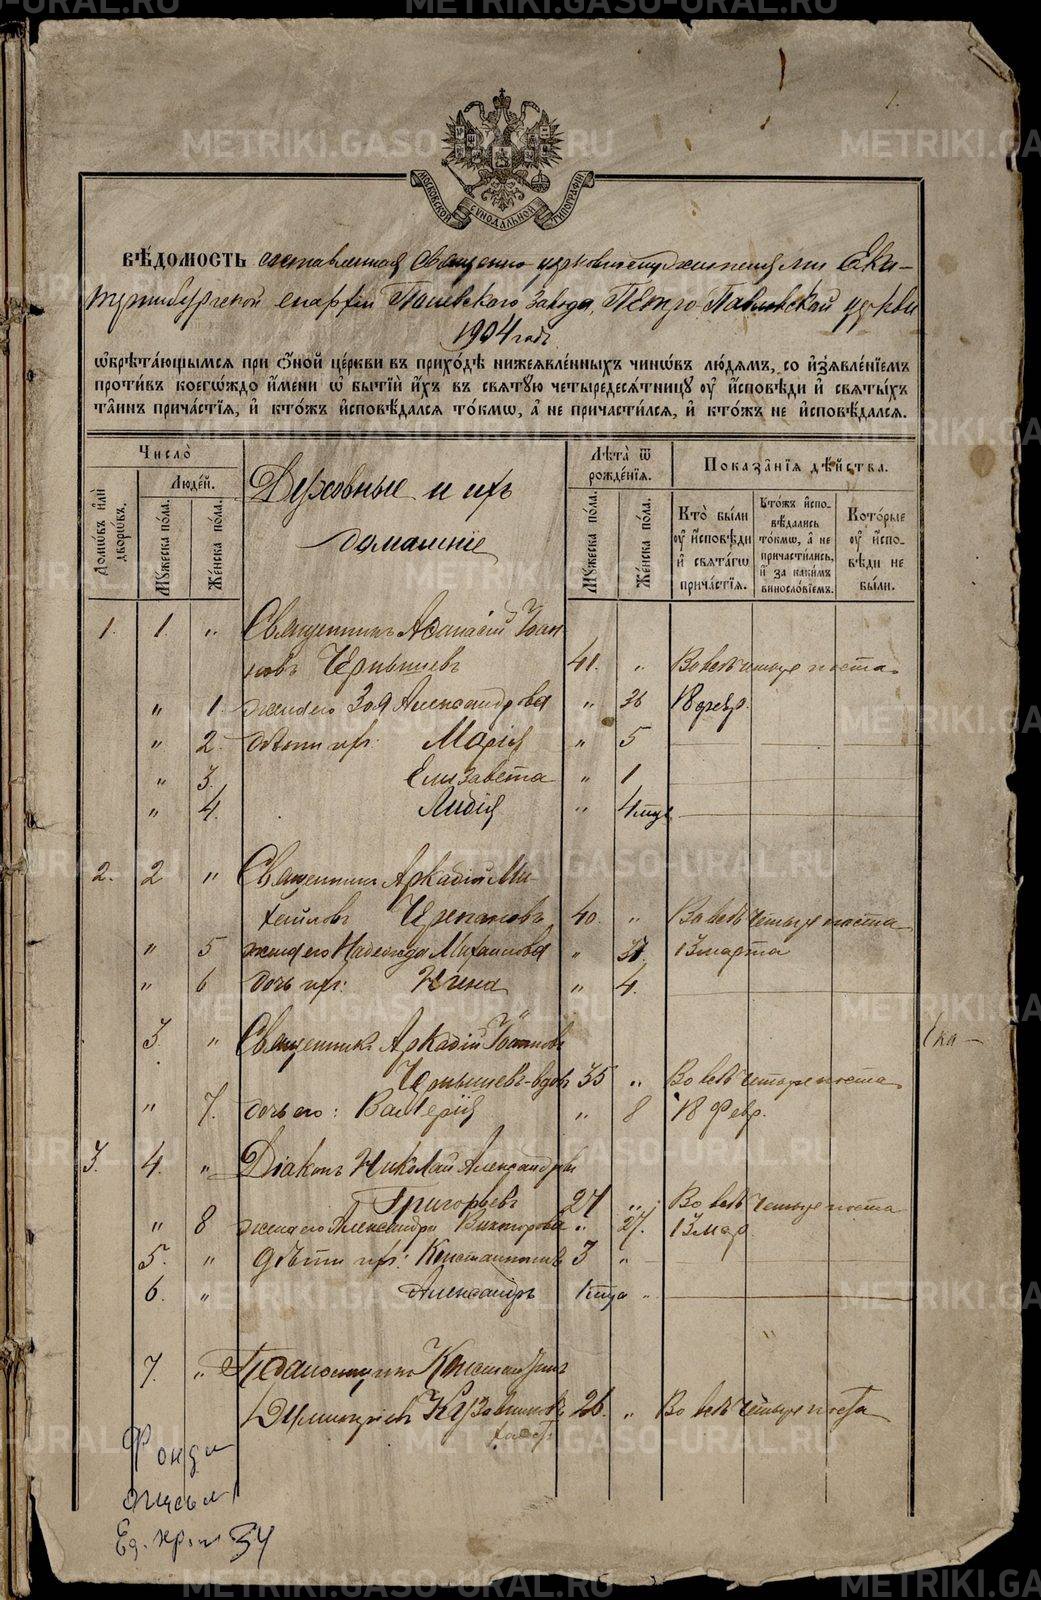 МОСКОВСКОЙ СѴНОДАЛЬНОЙ ТИПОГРАФІИ
ВѢ́ДОМОСТЬ составленная Священно церковнослужителями Ека-
теринбургской епархіи завода, Петро-Павловской церкви
1904 годъ
ѡ҆брѣта́ющымсѧ при ѻ҆́ной це́ркви въ прихо́дѣ нижеѧвле́нныхъ чинѡ́въ лю́демъ, со и҆з̾ѧвле́нїемъ
проти́въ коегѡ́ждо и҆́мени ѡ҆ бытїѝ и҆́хъ въ свѧтꙋ́ю четыредесѧ́тницꙋ ᲂу҆ и҆сповѣ́ди и҆ свѧты́хъ
та́инъ прича́стїѧ, и҆ кто́жъ и҆сповѣ́далсѧ то́кмѡ, а҆ не причасти́лсѧ, и҆ кто́жъ не и҆сповѣ́далсѧ.
Число̀
Домѡ́въ и҆лѝ дворѡ́въ.
Люде́й.
Мꙋ́жеска по́ла.
Же́нска по́ла.
Духовные и ихъ
домашніе
Лѣ́та ѿ рожде́нїѧ.
Мꙋ́жеска по́ла.
Же́нска по́ла.
Показа̑нїѧ дѣ́йства.
Кто̀ бы́ли ᲂу҆ и҆сповѣ́ди и҆ свѧта́гѡ прича́стїѧ.
Кто́жъ и҆спо-вѣ́дались то́кмѡ, а҆ не причасти́лись, и҆ за каки́мъ виносло́вїемъ.
Кото́рые ᲂу҆ и҆спо-вѣ́ди не бы́ли.
1. 1. " Священникъ Афанасій Іоан
новъ Чернышевъ 41. " Во всѣ четыре поста
" 1 жена его Зоя Александрова " 36 18 февр.
" 2 дѣти ихъ: Марія " 5
" 3. Елизавета " 1
" 4. Лидія " 4 мце
2. 2 " Священникъ Аркадій Ми-
хайловъ Черепановъ 40. " Во всѣ четыре поста
" 5 жена его Надежда Михаилова " 37. 13 марта
" 6 дочь ихъ: Нина " 4.
3. " Священникъ Аркадій Іоанновъ
Чернышевъ-вдовъ 35 " Во всѣ четыре поста
" 7. дочь его: Валерія " 8 18 Февр.
3. 4. " Діаконъ Николай Александровъ
Григорьевъ 27 " Во всѣ четыре поста
" 8 жена его Александра Викторова " 27. 13 мар
5. " дѣти ихъ: Константинъ 3 "
6. " Александръ 1 мца "
7. " Псаломщикъ Константинъ
Димитріевъ 26. " Во всѣ четыре поста
Фонд
опись
Ед. хр. 54
METRIKI.GASO-URAL.RU